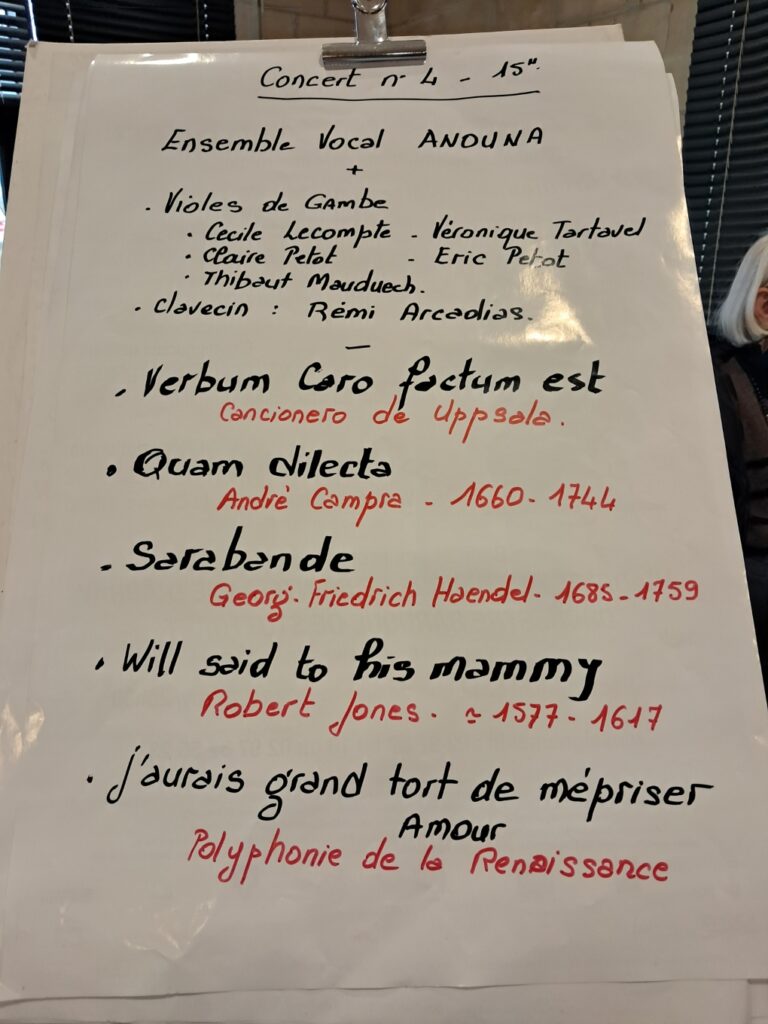 Concert n° 4 - 15".
Ensemble Vocal ANOUNA
+
. Violes de GAMBE
. Cecile Lecompte - Véronique Tartavel
. Claire Petot - Eric Petot
. Thibaut Mauduech.
. Clavecin : Rémi Arcadias.
-
. Verbum Caro factum est
Cancionero de Uppsala.
. Quam dilecta
André Campra - 1660 - 1744
. Sarabande
Georg. Friedrich Haendel - 1685 - 1759
. Will said to his mammy
Robert Jones. ≃ 1577 - 1617
. j'aurais grand tort de mépriser
AMOUR
Polyphonie de la Renaissance